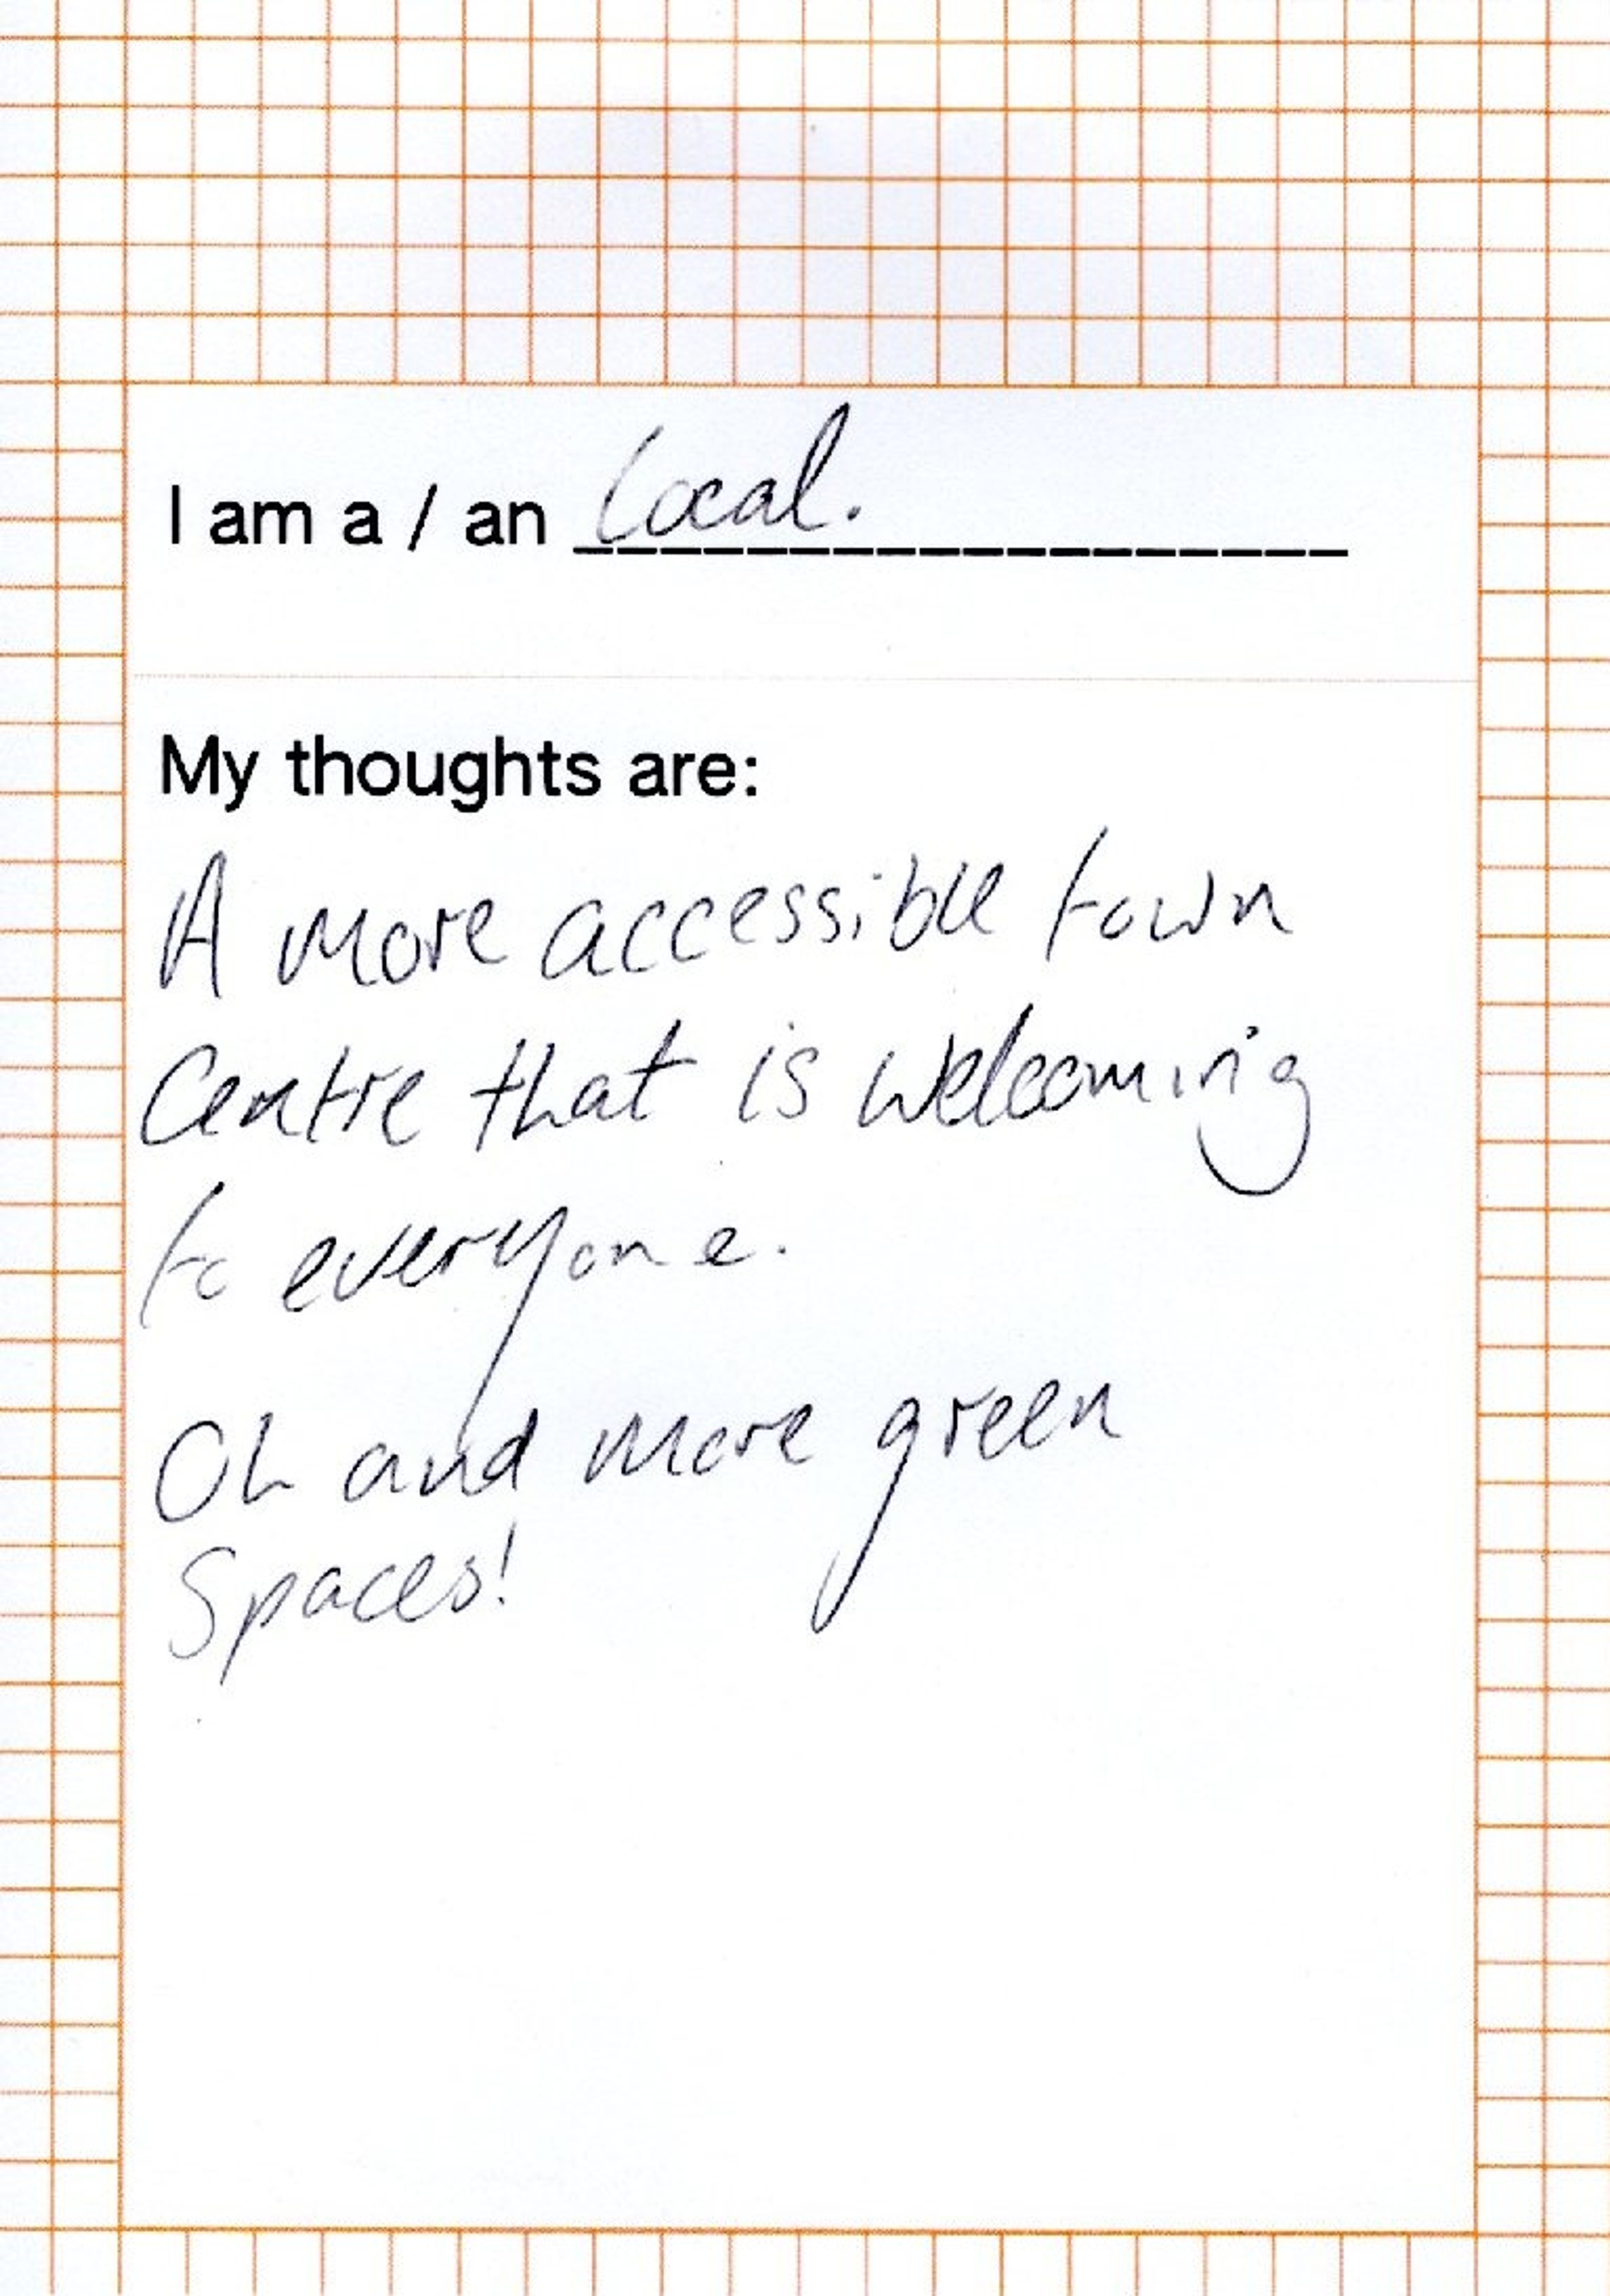 I am a / an local.
My thoughts are:
A more accessible town
Centre that is welcoming
to everyone.
Oh and more green
Spaces!